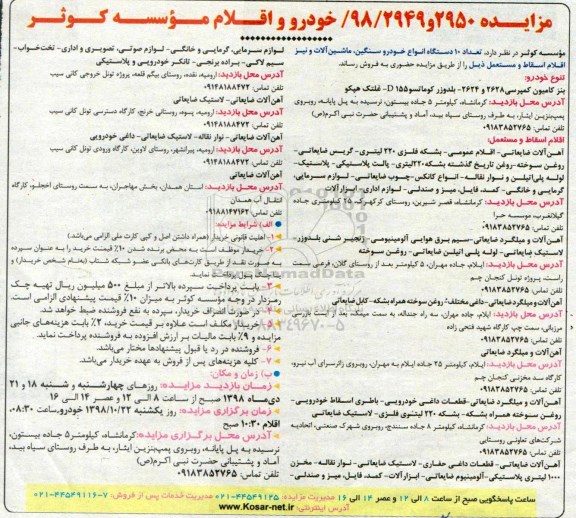 مزایده ۲۹۵۰و۹۸/۲۹۴۹/ خودرو و اقلام مؤسسه کوثر
مؤسسه کوثر در نظر دارد، تعداد ۱۰ دستگاه انواع خودرو سنگین، ماشین‌آلات و نیز
اقلام اسقاط و مستعمل ذیل را از طریق مزایده حضوری به فروش رساند.
نوع خودرو:
بنز کامیون کمپرسی ۲۶۲۸ و ۲۶۲۴ - بلدوزر کوماتسو D 155- غلتک هپکو
آدرس محل بازدید: کرمانشاه، کیلومتر ۵ جاده بیستون، نرسیده به پل پایانه، روبروی
پمپ‌بنزین ایثار، به طرف روستای سیاه بید، آماد و پشتیبانی حضرت نبی اکرم(ص)
تلفن تماس: ۰۹۱۸۳۸۵۲۷۶۵
اقلام اسقاط و مستعمل:
آهن آلات ضایعاتی- اقلام عمومی - بشکه فلزی ۲۲۰ لیتری - گریس ضایعاتی-
روغن سوخته -روغن تاریخ گذشته بشکه۲۲۰لیتری- پالت پلاستیکی - پلاستیک-
لوله پلی‌اتیلن و نوار نقاله- انواع کانکس-چوب ضایعاتی- لوازم سرمایی،
گرمایی و خانگی- کمد، فایل، میز و صندلی - لوازم اداری- ابزارآلات
آدرس محل بازدید: کرمانشاه، قصر شیرین، روستای کرکهرک، ۲۵ کیلومتری جاده
گیلانغرب، موسسه حرا
تلفن تماس: ۰۹۱۸۳۸۵۲۷۶۵
آهن آلات و میلگرد ضایعاتی -سیم برق هوایی آلومینیومی- زنجیر شنی بلدوزر
لاستیک ضایعاتی- لوله پلی اتیلن ضایعاتی- روغن سوخته
آدرس محل بازدید: ایلام، جاده مهران، ۵ کیلومتر بعد از روستای گلان، فرعی سمت
راست، پروژه تونل کنجان چم
تلفن تماس: ۰۹۱۸۳۸۵۲۷۶۵
آهن آلات و میلگرد ضایعاتی- داغی مختلف؛ روغن سوخته همراه بشکه- کابل ضایعاتی
آدرس محل بازدید: ایلام، جاده مهران، سه راه جندالله، به سمت میمک، بعد از بازرسی
مرزبانی، سمت چپ کارگاه شهید فتحی زاده
تلفن تماس: ۰۹۱۸۳۸۵۲۷۶۵
آهن آلات و میلگرد ضایعاتی
آدرس محل بازدید: ایلام، کیلومتر ۲۵ جاده ایلام به مهران، روبروی زائرسرای آب نیرو،
کارگاه سد مخزنی کنجان چم
تلفن تماس: ۰۹۱۸۳۸۵۲۷۶۵
آهن آلات و میلگرد ضایعاتی -قطعات داغی خودرویی- باطری اسقاط خودرویی-
روغن سوخته همراه بشکه- بشکه ۲۲۰ لیتری فلزی- لاستیک ضایعاتی
آدرس محل بازدید: کرمانشاه، کیلومتر ۸ جاده سنندج، روبروی شهرک صنعتی، اتحادیه
شرکت‌های تعاونی روستایی
تلفن تماس: ۰۹۱۸۳۸۵۲۷۶۵
آهن آلات ضایعاتی - قطعات داغی حفاری - لاستیک ضایعاتی - نوار نقاله- مخزن
۱۰۰۰ لیتری پلاستیکی - آلومینیوم ضایعاتی- ابزارآلات- کمد، فایل، میز و صندلی-
لوازم سرمایی، گرمایی و خانگی- لوازم صوتی، تصویری و اداری- تخت‌خواب-
سیم لاکی- پراده برنجی- تانکر خودرویی و پلاستیکی
آدرس محل بازدید: ارومیه، نقده، روستای بیگم قلعه، پروژه تونل خروجی کانی سیب
تلفن تماس: ۰۹۱۴۸۱۸۸۴۷۲
آهن آلات ضایعاتی- لاستیک ضایعاتی
آدرس محل بازدید: ارومیه، پسوه، روستانی خرنج، کارگاه دسترسی تونل کانی سیب
تلفن تماس: ۰۹۱۴۸۱۸۸۴۷۲
آهن آلات ضایعاتی- نوار نقاله- لاستیک ضایعاتی- داغی خودرویی
آدرس محل بازدید: ارومیه، پیرانشهر، روستای لاوین، کارگاه ورودی تونل کانی سیب
تلفن تماس: ۰۹۱۴۸۱۸۸۴۷۲
آهن آلات ضایعاتی
آدرس محل بازدید: استان همدان، بخش مهاجران، به سمت روستای اخجلو، کارگاه
انتقال آب همدان
تلفن تماس: ۰۹۱۸۸۱۴۷۱۶۲
الف) شرایط مزایده:
۱- اهلیت قانونی خریدار (همراه داشتن اصل و کپی کارت ملی الزامی می‌باشد)
۲- خریدار موظف است به محض برنده شدن ۱۰٪ قیمت خرید را به عنوان سپرده
به صورت نقد از طریق کارت‌های بانکی عضو شبکه شتاب (بنام شخص خریدار) و
یا چک بانکی پرداخت نماید.
۳- بابت پرداخت سپرده بالاتر از مبلغ ۵۰۰ میلیون ریال تهیه چک
رمزدار در وجه مؤسسه کوثر به میزان ۱۰٪ قیمت پیشنهادی الزامی است.
۴- در صورت انصراف خریدار، سپرده به نفع فروشنده ضبط خواهد شد.
۵- خریدار مکلف است علاوه بر قیمت خرید، ۲٪ بابت هزینه‌های جانبی
مزایده و ۹٪ بابت مالیات بر ارزش افزوده به فروشنده پرداخت نماید.
۶- فروشنده در رد یا قبول پیشنهادها مختار می‌باشد.
۷- کلیه هزینه‌های پس از فروش به عهده خریدار می‌باشد.
ب) زمان و مکان:
زمان بازدید مزایده: روزهای چهارشنبه و شنبه ۱۸ و ۲۱
دی‌ماه ۱۳۹۸ صبح از ساعت ۸ الی ۱۲ و عصر ۱۴ الی ۱۶
زمان برگزاری مزایده: روز یکشنبه ۱۳۹۸/۱۰/۲۲ خودرو،ساعت ۰۸:۳۰،
اقلام ۱۰:۳۰ صبح
آدرس محل برگزاری مزایده:کرمانشاه، کیلومتر ۵ جاده بیستون،
نرسیده به پل پایانه، روبروی پمپ‌بنزین ایثار، به طرف روستای سیاه بید،
آماد و پشتیبانی حضرت نبی اکرم(ص)
تلفن تماس: ۰۹۱۸۳۸۵۲۷۶۵
ساعت پاسخگویی صبح از ساعت ۸ الی ۱۲ و عصر ۱۴ الی ۱۶ مدیریت مزایده: ۴۴۵۴۹۱۲۵-۰۲۱ مدیریت خدمات پس از فروش: ۷-۴۴۵۴۹۱۱۶-۰۲۱
آدرس اینترنتی: www.Kosar-net.ir